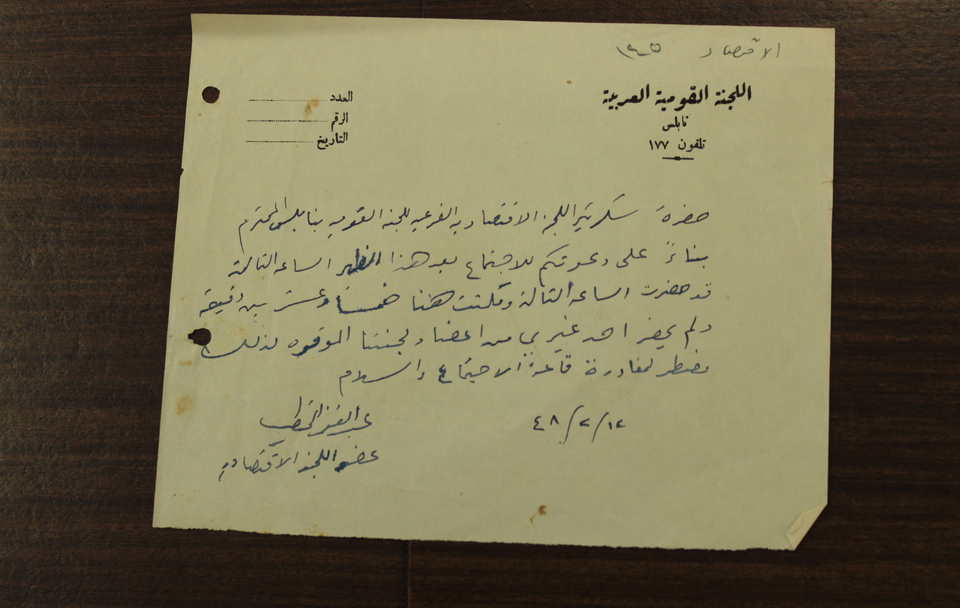 الاقتصاد ١٢٠٥
اللجنة القومية العربية
نابلس
تلفون ١٧٧
العدد
الرقم
التاريخ
حضرة سكرتير اللجنة الاقتصادية الفرعيه للجنة القوميه بنابلس المحترم
بناءً على دعوتكم للاجتماع بعد هذا الظهر الساعه الثالثة
قد حضرت الساعه الثالثة ومكثت هنا خمسا وعشرين دقيقة
ولم يحضر احد غيري من اعضاء لجنتنا الموقره لذلك
نضطر لمغادرة قاعة الاجتماع والسلام
١٢/٢/٤٨
عضو اللجنة الاقتصادية